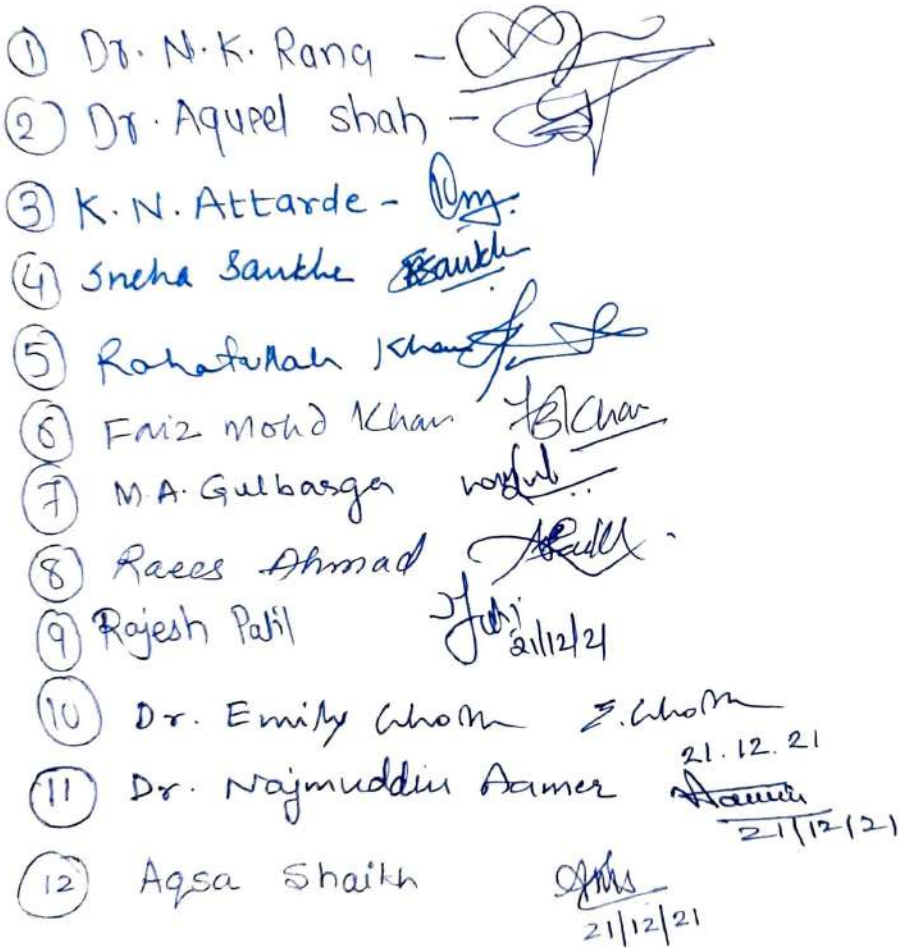 ① Dr. N.K. Rana -
② Dr. Aqueel Shah -
③ K.N. Attarde -
④ Sneha Sankhe Ssankhe
⑤ Rahatullah Khan
⑥ Faiz Mohd Khan FBKhan
⑦ M.A. Gulbarga
⑧ Raees Ahmad
⑨ Rajesh Patil
21/12/21
⑩ Dr. Emily Ghosh E.Ghosh
21.12.21
⑪ Dr. Najmuddin Aamer Aamer
21/12/21
⑫ Aqsa Shaikh
21/12/21